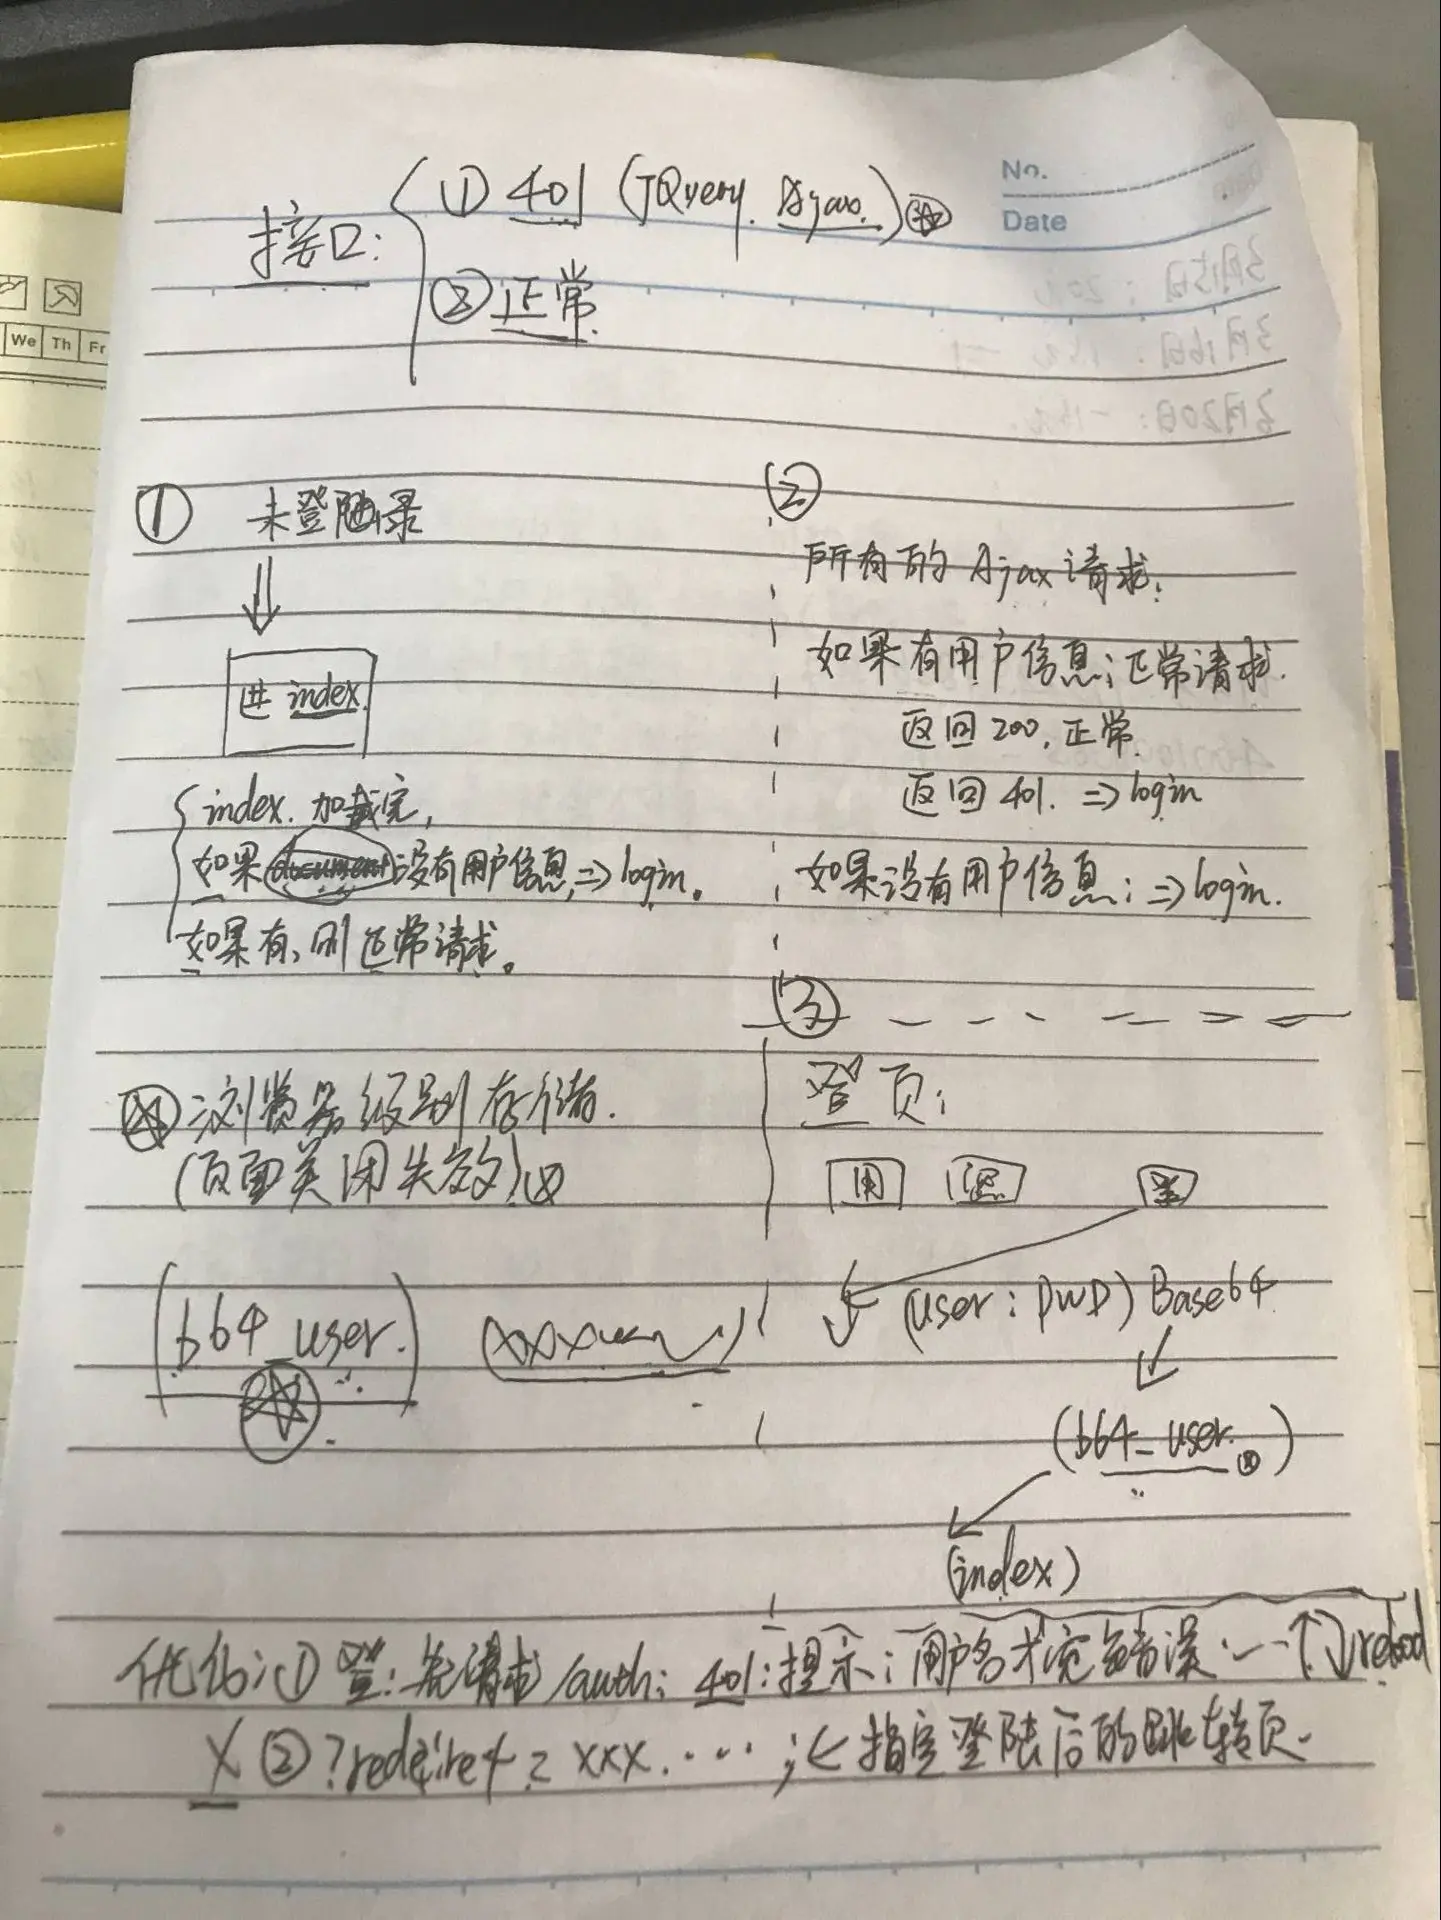 No.
Date
We Th Fr
接口:
① 401 (JQuery. Ajax.)
② 正常.
① 未登陆录
进 index.
index. 加载完,
如果 没有用户信息, => login。
如果有, 则正常请求。
②
所有的 Ajax 请求:
如果有用户信息; 正常请求.
返回 200, 正常.
返回 401. => login
如果没有用户信息: => login.
浏览器级别存储.
(页面关闭失效)
(b64_user.)
③
登页:
用 密 登
(user : PWD) Base64
(b64_user.)
(index)
优化: ① 登: 先请求 /auth: 401: 提示: 用户名 错误 reload
X ② ?redirect = xxx. ...; <- 指定登陆后的跳转页.